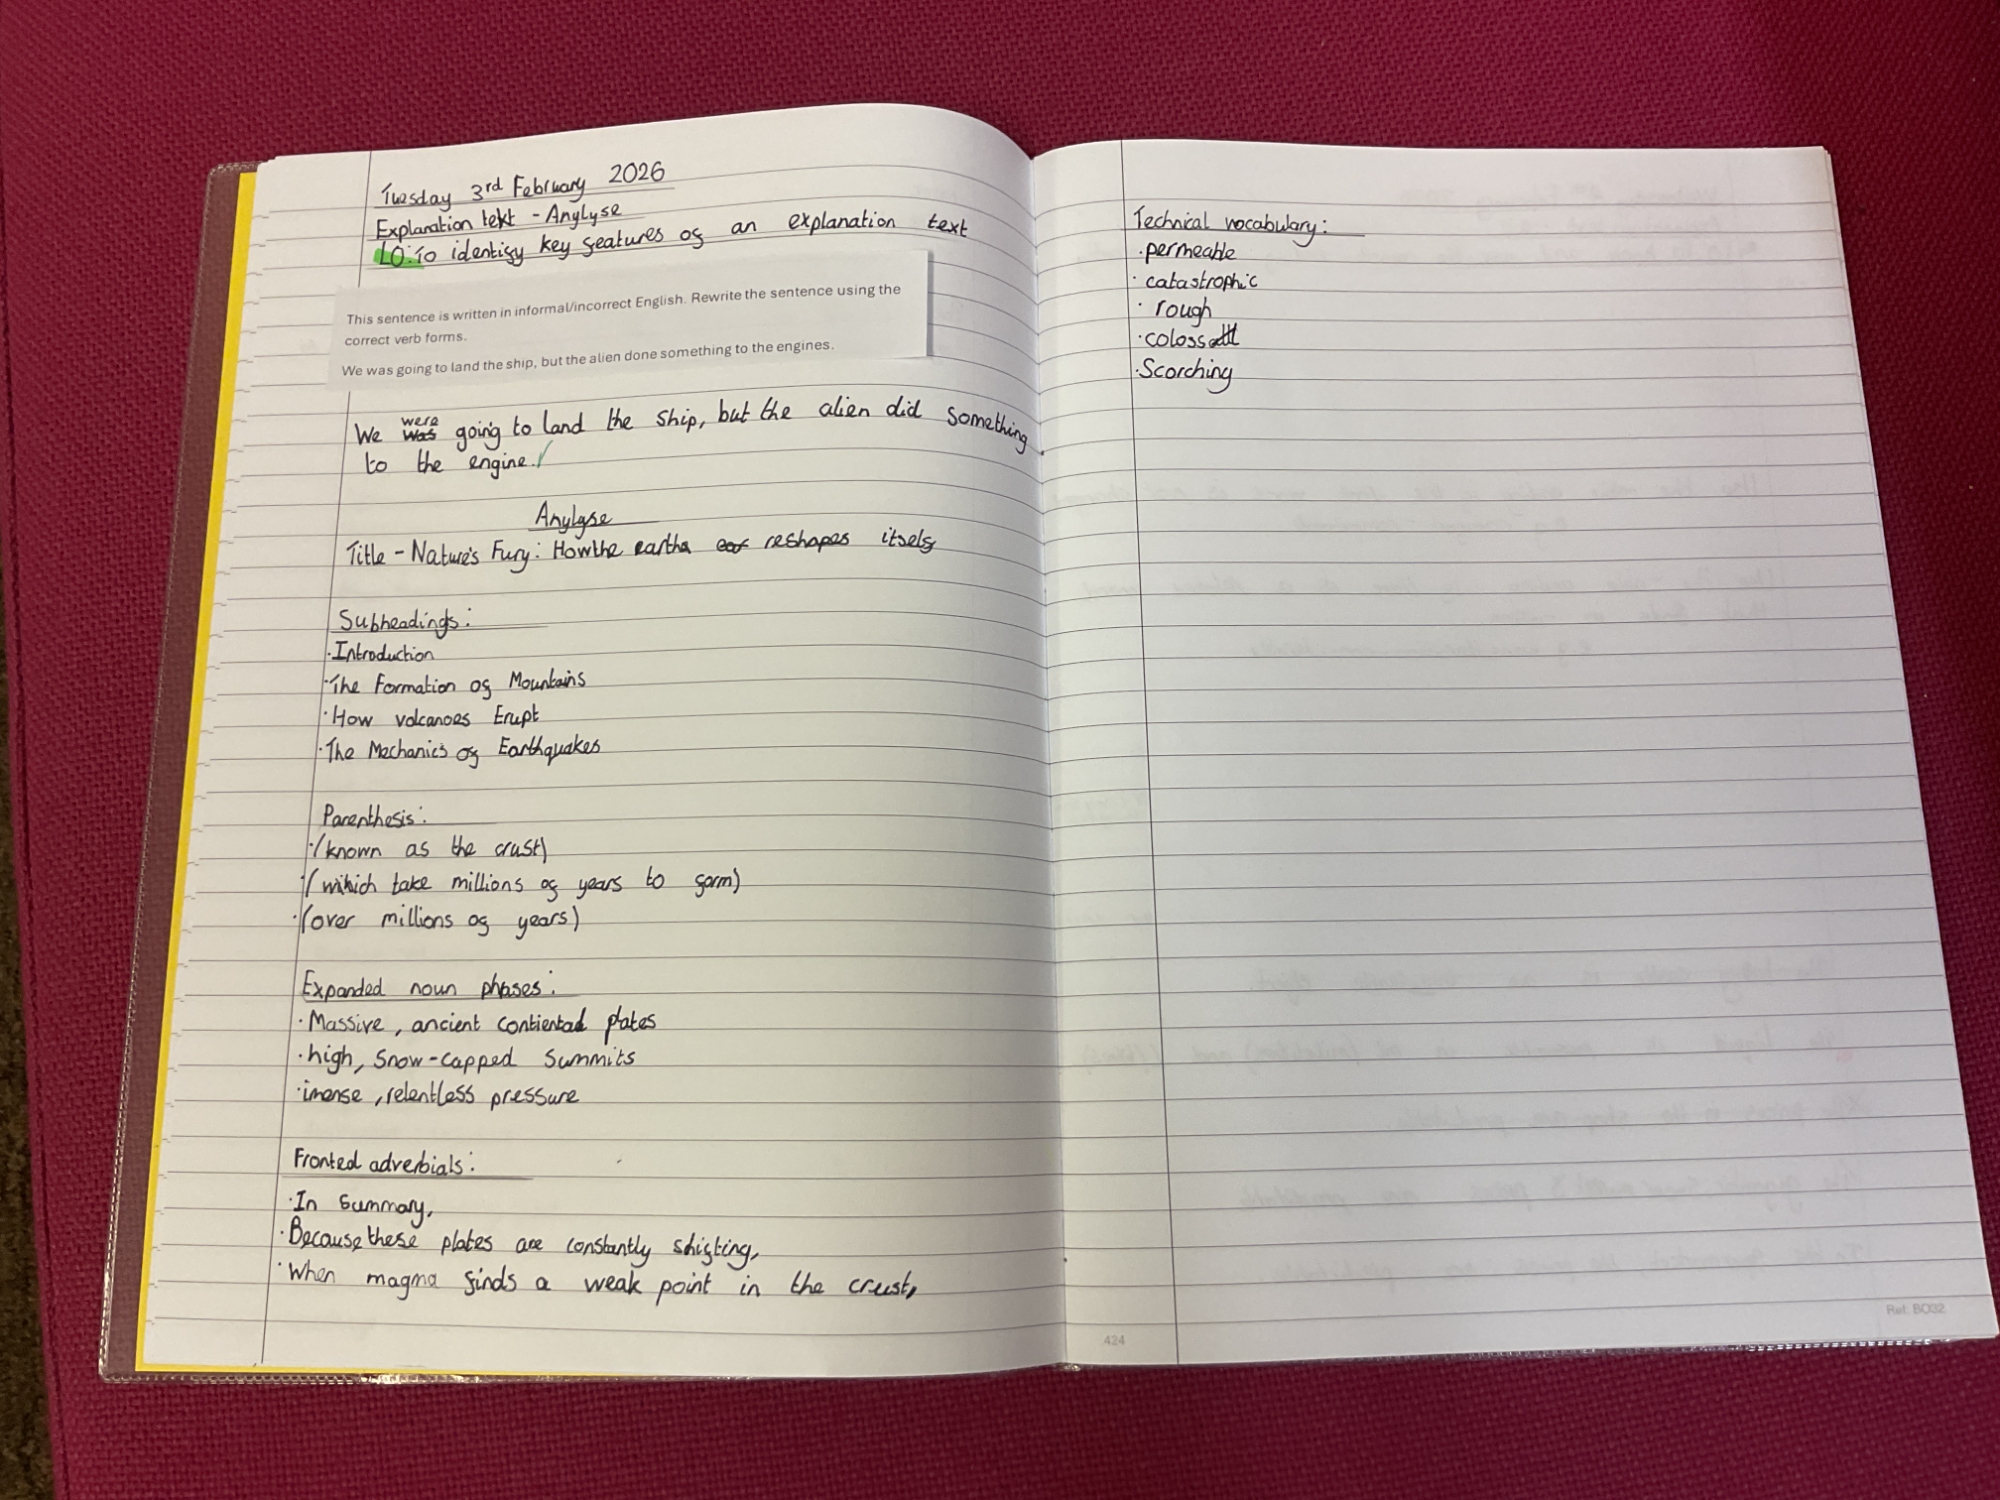 Tuesday 3rd February 2026
Explanation text - Anylyse
LO: To identify key features of an explanation text
This sentence is written in informal/incorrect English. Rewrite the sentence using the
correct verb forms.
We was going to land the ship, but the alien done something to the engines.
were
We was going to land the ship, but the alien did something
to the engine.
Anylyse
Title - Nature's Fury: How the earth reshapes itself
Subheadings:
·Introduction
·The Formation of Mountains
·How volcanoes Erupt
·The Mechanics of Earthquakes
Parenthesis:
·(known as the crust)
·(which take millions of years to form)
·(over millions of years)
Expanded noun phases:
·Massive, ancient contiental plates
·high, snow-capped summits
·imense, relentless pressure
Fronted adverbials:
·In summary,
·Because these plates are constantly shifting,
·When magma finds a weak point in the crust,
Technical vocabulary:
·permeable
·catastrophic
·rough
·colossal
·Scorching
424
Ref: BO32